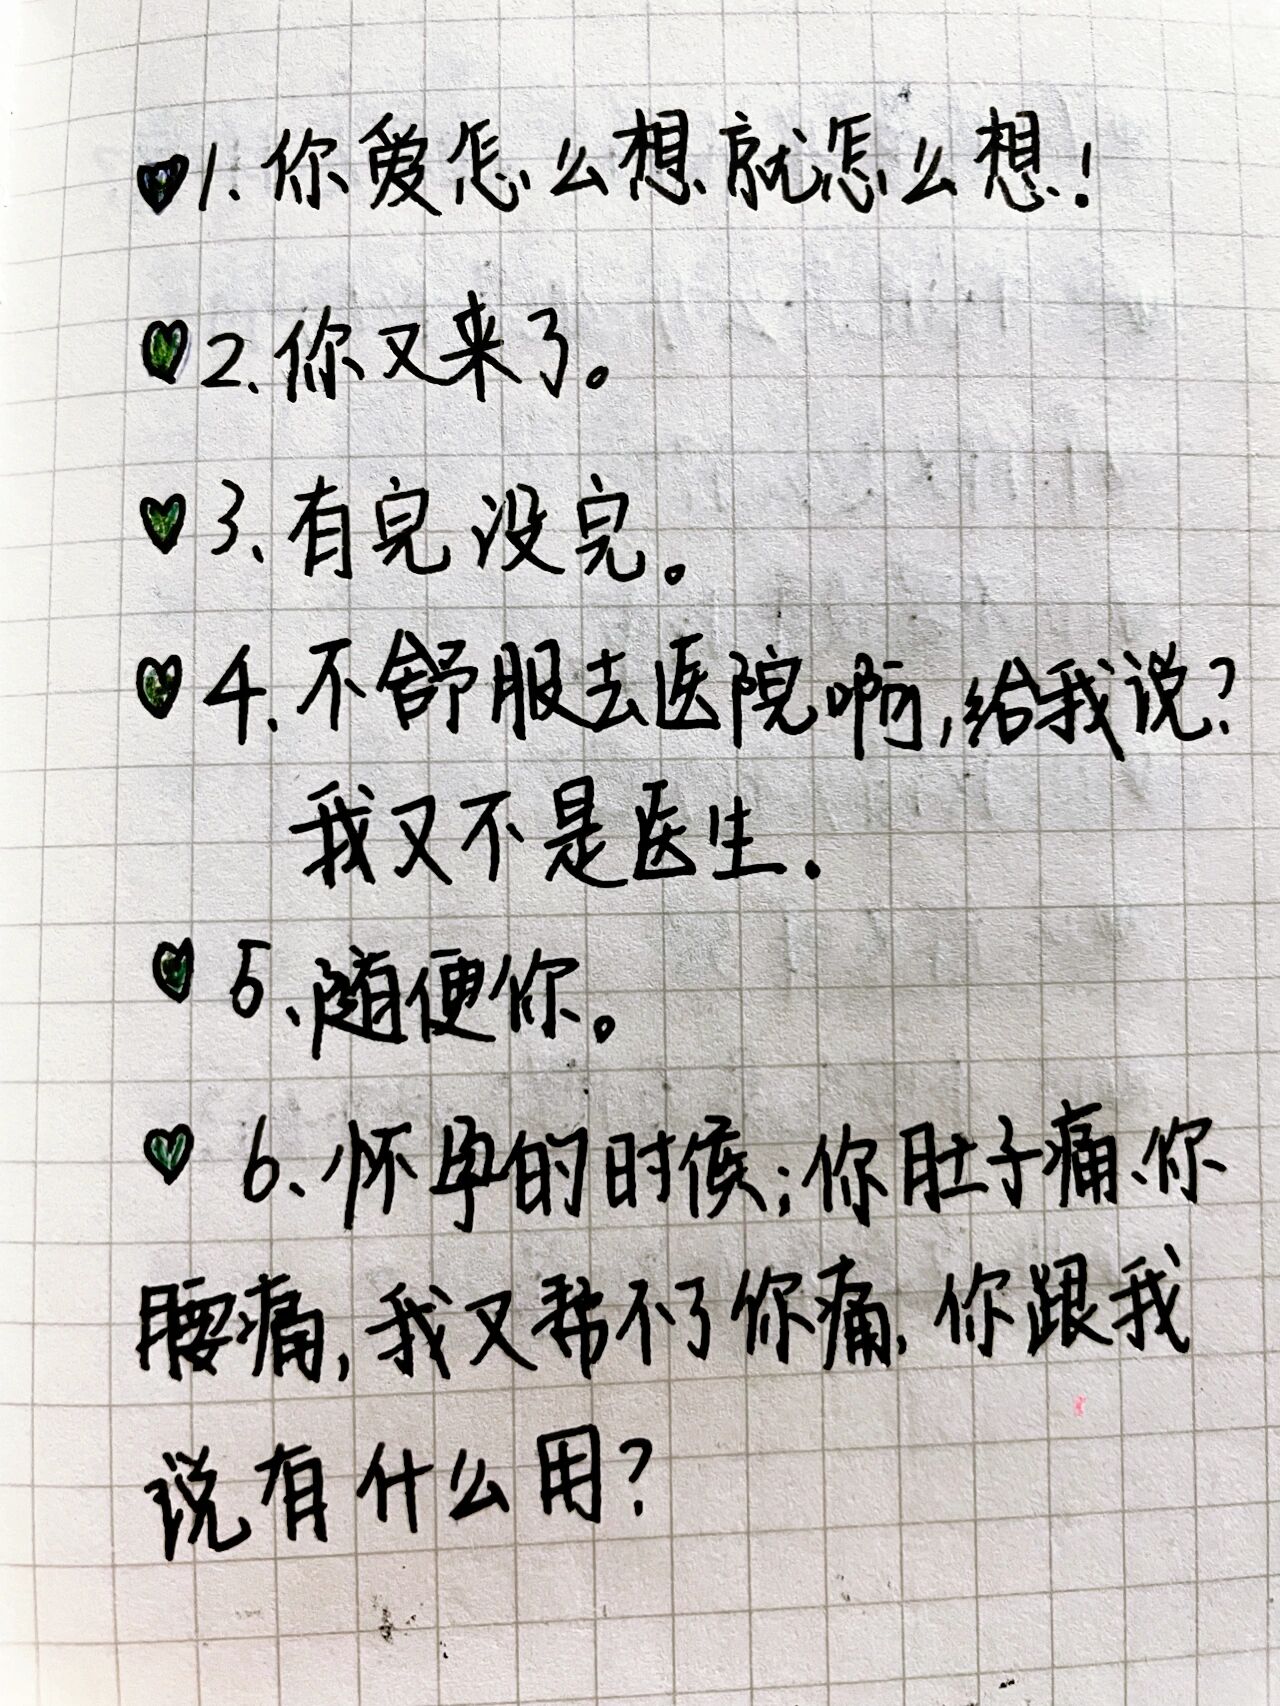 1.你爱怎么想就怎么想!
2、你又来了。
3、有完没完。
4、不舒服去医院啊,给我说?
我又不是医生.
5、随便你。
6、怀孕的时候;你肚子痛、你
腰痛,我又帮不了你痛,你跟我
说有什么用?